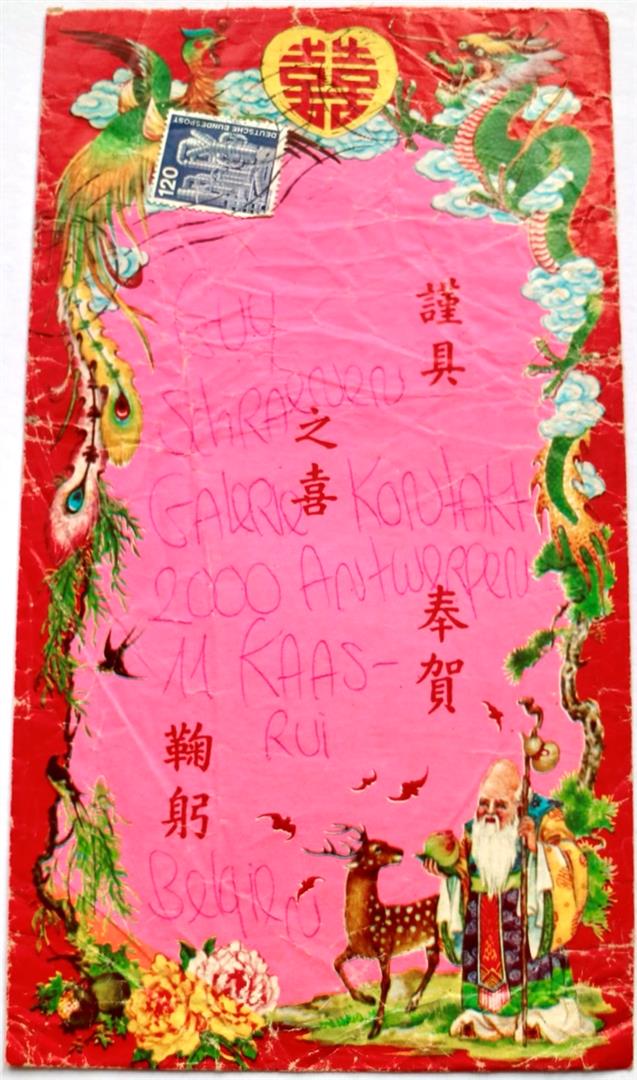 囍
DEUTSCHE BUNDESPOST
120
謹具
奉賀
之喜
鞠躬
Guy
SCHRAENEN
GALERIE KONTAKT
2000 ANTWERPEN
11 KAAS-
RUI
Belgien